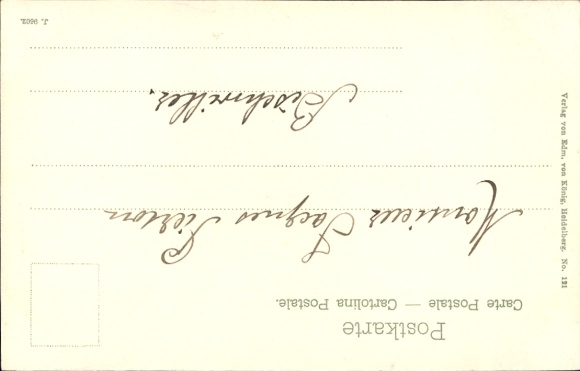 Postkarte
Carte Postale — Cartolina Postale.
Monsieur Jacques Pierson
Bischwiller.
Verlag von Edm. von König, Heidelberg. No. 121
J. 9602.